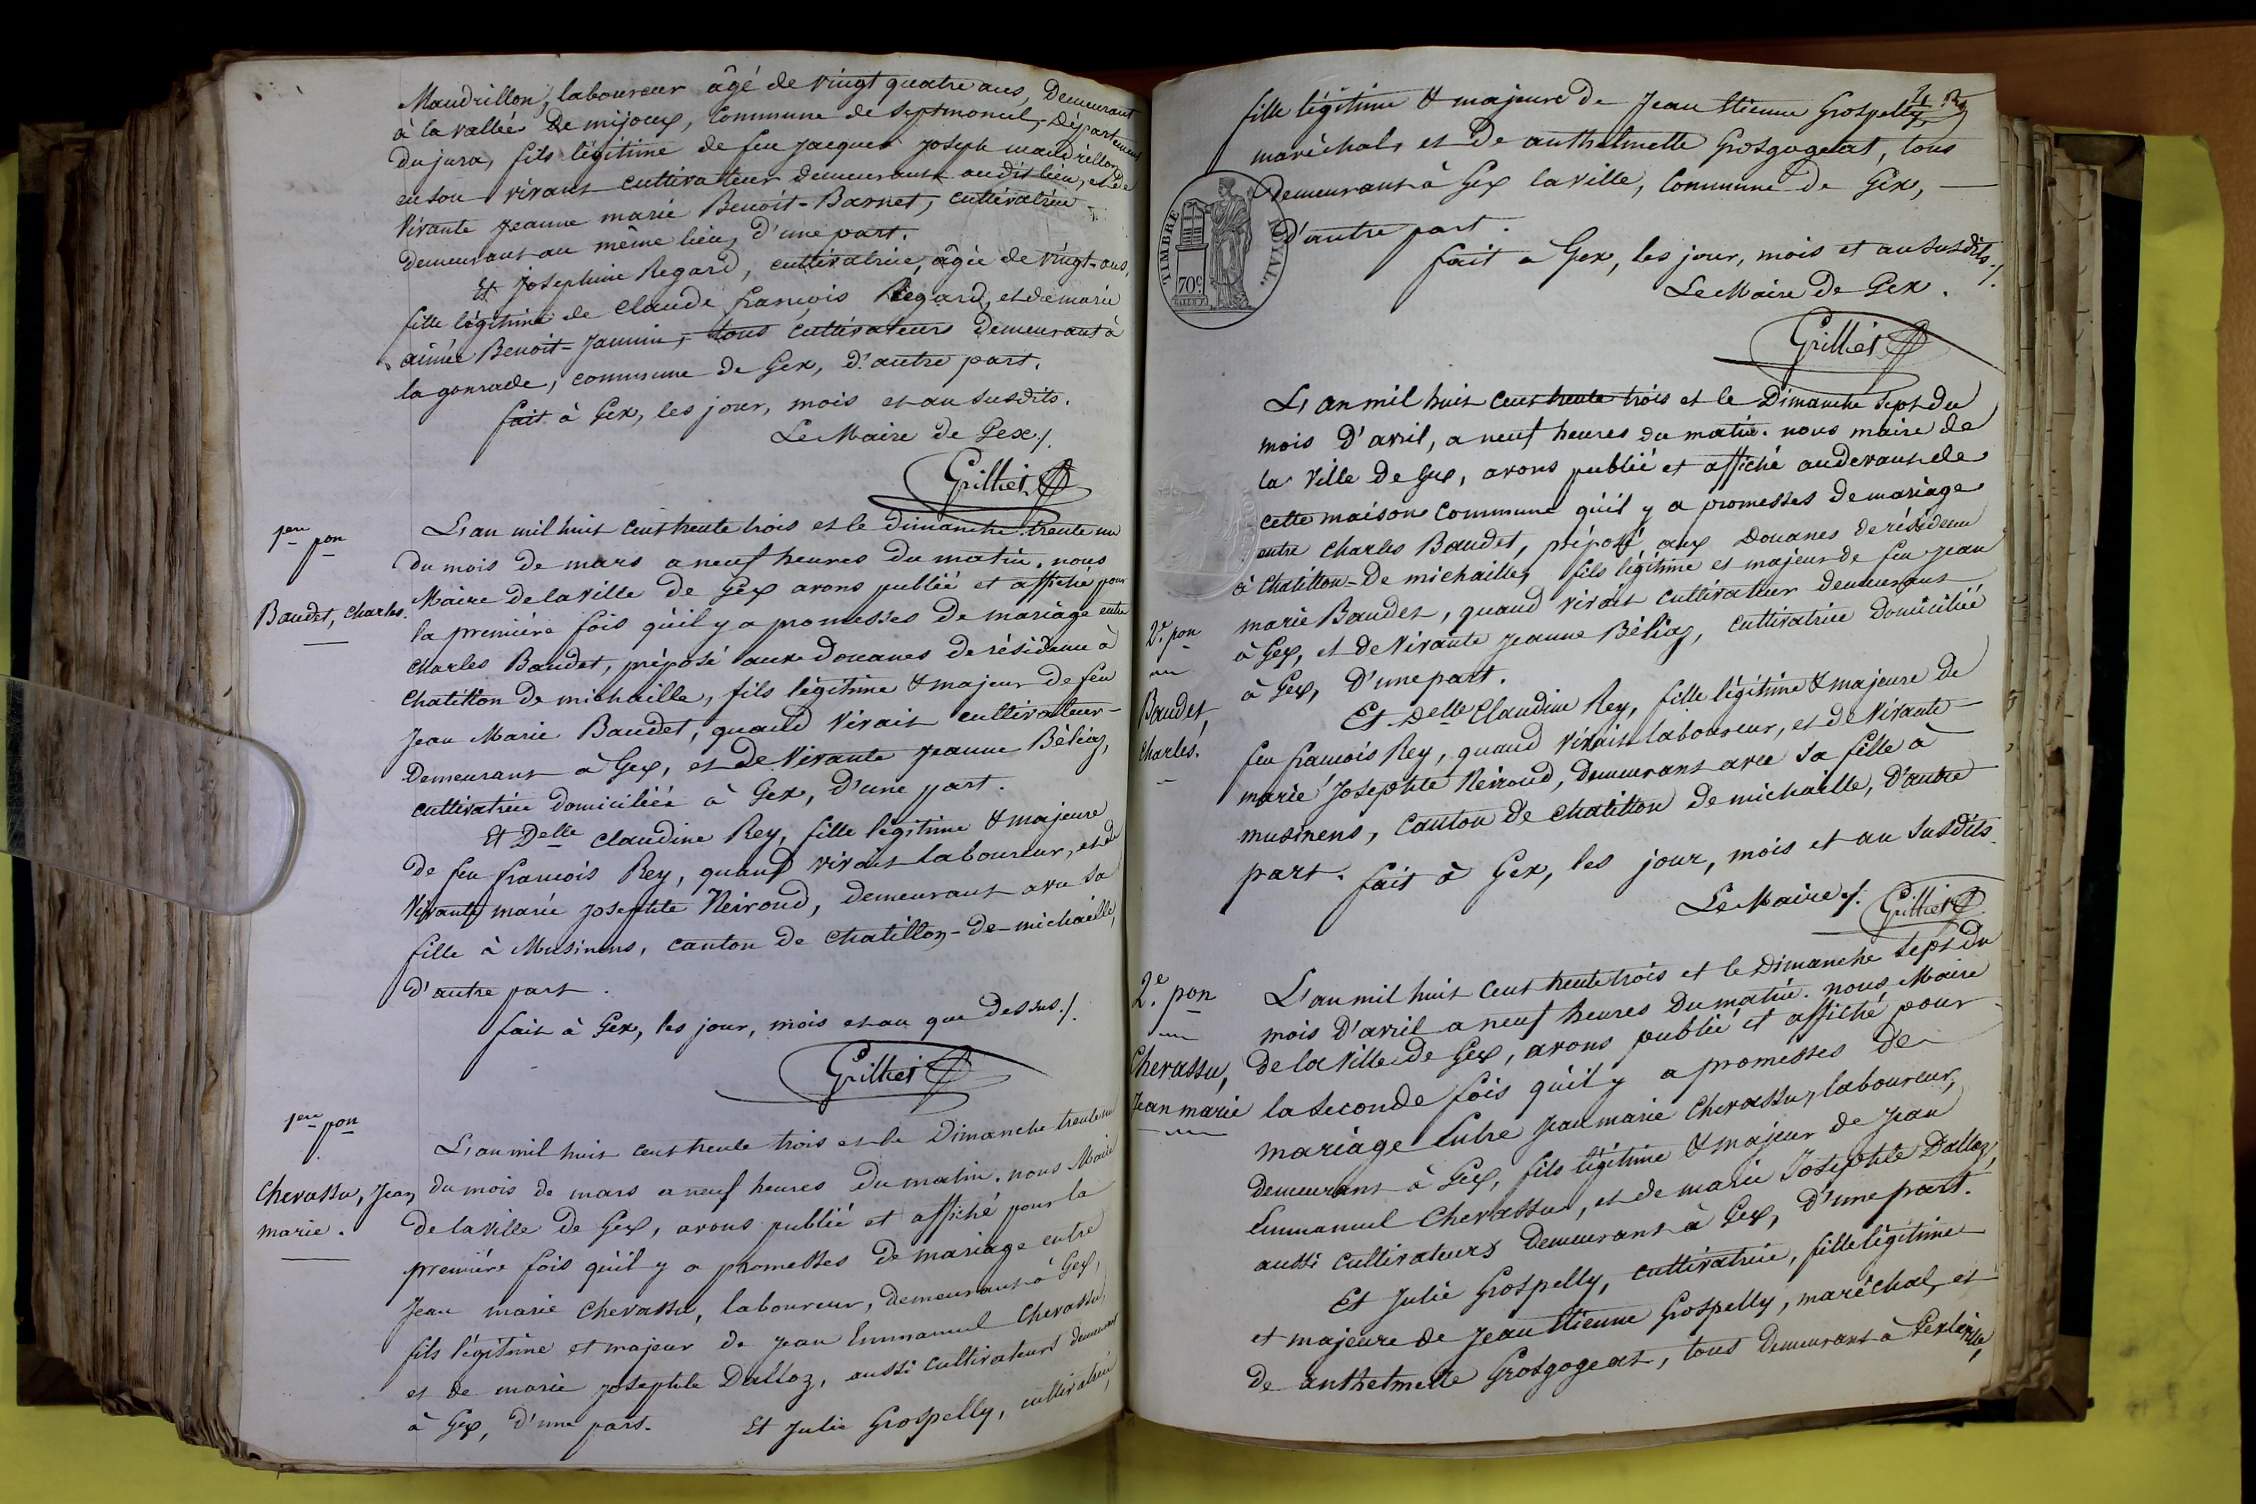 Maudrillon, laboureur âgé de vingt quatre ans, Demeurant
à la vallée De mijoux, Commune de Septmoncel, Département
Du jura, fils légitime de feu Jacques Joseph maudrillon
en son vivant cultivateur demeurant audit lieu, et de
Vivante Jeanne marie Benoit-Barnet, cultivatrice
Demeurant au même lieu, d'une part.
Et Josephine Regard, cultivatrice, âgée de vingt-ans,
fille légitime de Claude françois Regard, et de marie
aimée Benoit-Jannin, tous cultivateurs demeurant à
la gonrade, commune de Gex, d'autre part.
fait à Gex, les jour, mois et an susdits.
Le Maire de Gex ./.
Grilliet
1ere pon
Baudet, Charles.
L'an mil huit cent trente trois et le dimanche trente un
du mois de mars a neuf heures du matin, nous
Maire de la ville de Gex avons publié et affiché pour
la première fois qu'il y a promesses de mariage entre
Charles Baudet, préposé aux Douanes de résidence à
Chatillon de michaille, fils légitime & majeur de feu
Jean Marie Baudet, quand vivait cultivateur
Demeurant à Gex, et de Vivante Jeanne Béliaz,
cultivatrice domiciliée à Gex, d'une part.
Et Delle Claudine Rey, fille légitime & majeure
de feu francois Rey, quand vivait laboureur, et de
Vivante marie Josephte Neiroud, demeurant avec sa
fille à Musinens, canton de Chatillon-de-michaille,
d'autre part.
fait à Gex, les jour, mois et an que dessus ./.
Grilliet
1ere pon
Chevassu, Jean
marie.
L'an mil huit cent trente trois et le Dimanche trente un
du mois de mars a neuf heures du matin, nous Maire
de la ville de Gex, avons publié et affiché pour la
première fois qu'il y a promesses de mariage entre
Jean marie Chevassu, laboureur, demeurant à Gex,
fils légitime et majeur de Jean Emmanuel Chevassu,
et de marie Josephte Dalloz, aussi cultivateurs demeurant
à Gex, d'une part. Et Julie Grospelly, cultivatrice
fille légitime & majeure de Jean Etienne Grospelly,
maréchal, et De anthelmette Grosgogeat, tous
demeurant à Gex la ville, Commune de Gex,
D'autre part.
fait à Gex, les jour, mois et an susdits ./.
Le Maire de Gex.
TIMBRE ROYAL
70c
Grilliet
2e pon
Baudet,
Charles.
L'an mil huit cent trente trois et le Dimanche sept du
mois d'avril, a neuf heures du matin. nous maire de
la Ville de Gex, avons publié et affiché audevant de
cette maison Commune qu'il y a promesses de mariage
entre Charles Baudet, préposé aux Douanes de résidence
à Chatillon-De michaille, fils légitime et majeur de feu Jean
marie Baudet, quand vivait cultivateur demeurant
à Gex, et de Vivante Jeanne Béliaz, cultivatrice domiciliée
à Gex, d'une part.
Et Delle Claudine Rey, fille légitime & majeure de
feu francois Rey, quand vivait laboureur, et de Vivante
marie Josephte Neiroud, Demeurant avec sa fille à
musinens, canton de Chatillon de michaille, d'autre
part. fait à Gex, les jour, mois et an susdits.
Le Maire ./. Grilliet
2e pon
Chevassu,
Jean marie
L'an mil huit cent trente trois et le Dimanche sept du
mois d'avril a neuf heures Du matin. nous Maire
de la Ville de Gex, avons publié et affiché pour
la seconde fois qu'il y a promesses de
mariage Entre Jean marie Chevassu, laboureur,
Demeurant à Gex, fils légitime & majeur de Jean
Emmanuel Chevassu, et de marie Josephte Dalloz,
aussi cultivateurs Demeurant à Gex, d'une part.
Et Julie Grospelly, cultivatrice, fille légitime
et majeure de Jean Etienne Grospelly, maréchal, et
de anthelmette Grosgogeat, tous Demeurant à Gex la ville,